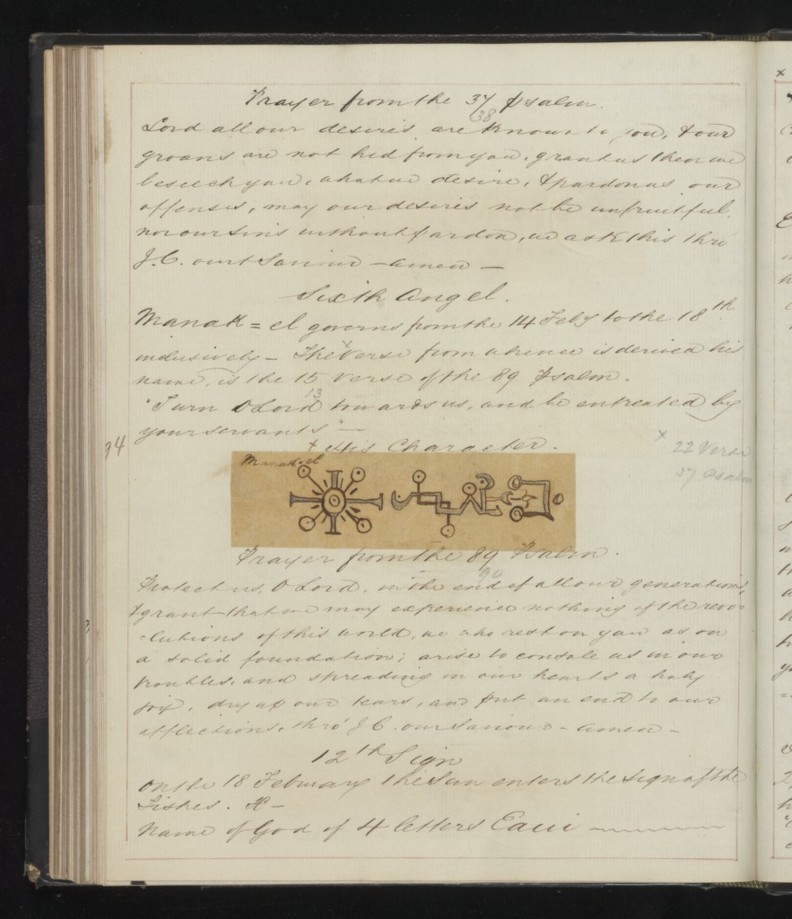 Prayer from the 37 Psalm.
38
Lord all our desires are known to you, & our
groans are not hid from you, grant us then we
beseech you, what we desire, & pardon us our
offenses, may our desires not be unfruitful,
nor our sins without pardon, we ask this thro
J.C. our Saviour - amen -
Sixth Angel.
Manak=el governs from the 14 Feby to the 18th
inclusively - The verse from whence is derived his
name, is the 15 verse of the 89 Psalm.
13
"Turn O Lord towards us, and be entreated by
your servants" -
34
+ His Character.
x 22 Verse
37 Psalm
Manakel
Prayer from the 89 Psalm.
90
Protect us, O Lord, in the end of all our generations,
& grant that we may experience nothing of the revo-
-lutions of this world, we who rest on you as on
a solid foundation; arise to console us in our
troubles, and spreading in our hearts a holy
joy, dry up our tears, and put an end to our
afflictions, thro' J C. our Saviour - amen -
12th Sign
On the 18 February the Sun enters the sign of the
Fishes. ♓ -
Name of God of 4 letters Eaui